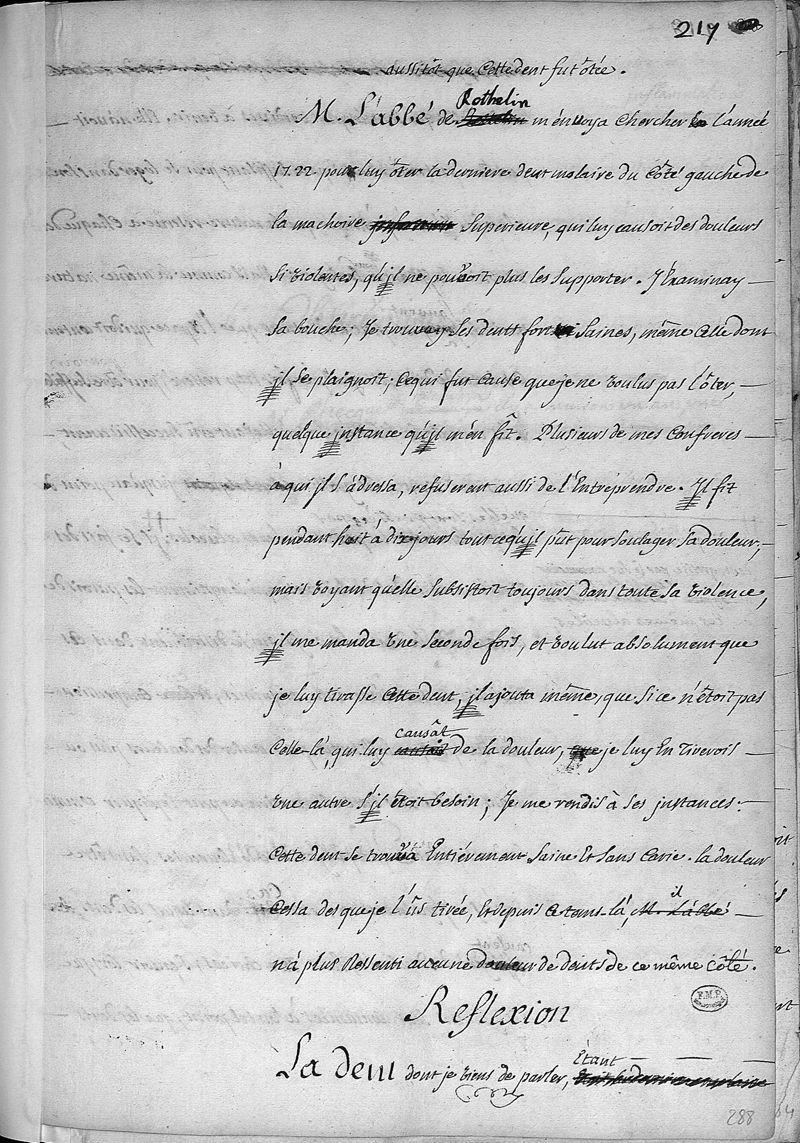 217
aussitôt que Cette dent fut ôtée.
Rothelin
M. L'abbé de m'énvoya chercher l'année
1722. pour luy ôter la derniere dent molaire du Côté gauche de
la machoire Superieure, qui luy causoit des douleurs
Si violentes, qu'jl ne pouvoit plus les Supporter. J'Examinay
Sa bouche; Je trouvay Ses dents fort Saines, même Celle dont
jl Se plaignoit; Ce qui fut cause que je ne voulus pas l'ôter,
quelque jnstance qu'jl m'én fît. Plusieurs de mes Confreres
à qui jl s'adressa, refuserent aussi de l'Entreprendre. Jl fit
pendant huit à dix jours tout ce qu'jl pût pour Soulager Sa douleur;
mais voyant qu'elle Subsistoit toujours dans toute Sa violence,
jl me manda une Seconde fois, et voulut absolument que
je luy tirasse Cette dent, jl ajouta même, que Si ce n'étoit pas
causât
Celle-là, qui luy causoit de la douleur, que je luy En tirerois
une autre s'jl étoit besoin; Je me rendis à Ses jnstances.
Cette dent Se trouva Entiérement Saine Et Sans Carie. la douleur
il
Cessa des que je l'ûs tirée, Et depuis Ce tems-là, M. L'abbé
n'a plus Ressenti aucune douleur de dents de ce même côté.
Reflexion
Etant
La dent dont je viens de parler,
288